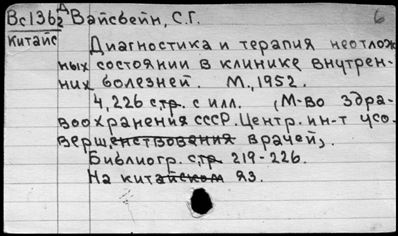 Вс1362 Д Вайсвейн, С.Г. 6
Китайс
Диагностика и терапия неотлож
ных состоянии в клинике внутрен-
них болезней. М., 1952.
4, 226 стр. с илл. (М-во Здра-
воохранения СССР. Центр. ин-т усо-
вершенствования врачей).
Библиогр. стр. 219-226.
На китайском яз.